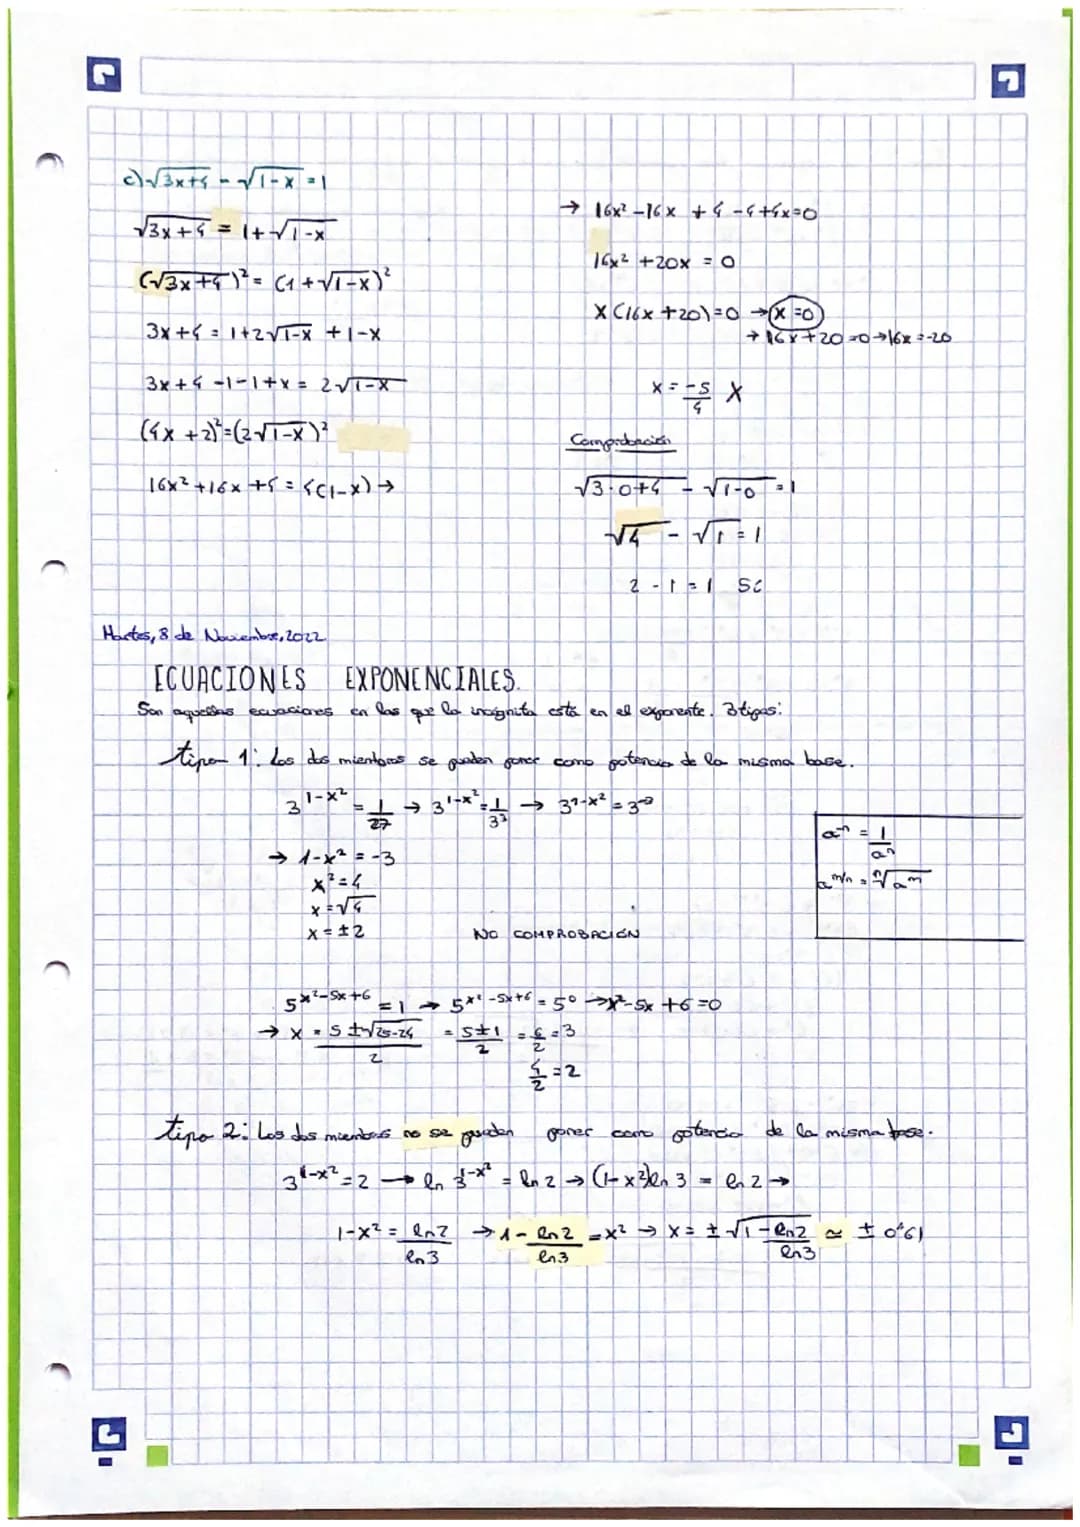 c) √3x+4 - √1-x = 1
√3x+4 = 1+√1-x
(√3x+4)² = (1+√1-x)²
3x+4 = 1+2√1-x +1-x
3x+4 -1-1+x = 2√1-x
(4x+2)²=(2√1-x)²
16x²+16x+4 = 4(1-x) →
→ 16x² -16x +4 -4+4x=0
16x² +20x = 0
x(16x+20)=0 → x=0
→ 16x+20=0→16x=-20
x = -5/4 X
Comprobación
√3·0+4 - √1-0 = 1
√4 - √1 = 1
2 - 1 = 1 Sí
Martes, 8 de Noviembre, 2022
ECUACIONES EXPONENCIALES.
Son aquellas ecuaciones en las que la incógnita está en el exponente. 3 tipos:
tipo 1: Los dos miembros se pueden poner como potencia de la misma base.
3^1-x² = 1/27 → 3^1-x² = 1/3³ → 3^1-x² = 3^-3
→ 1-x² = -3
x² = 4
x = √4
x = ±2 NO COMPROBACIÓN
a^-n = 1/a^n
a^m/n = ⁿ√a^m
5^x²-5x+6 = 1 → 5^x²-5x+6 = 5⁰ → x²-5x+6=0
→ x = 5±√25-24 / 2 = 5±1 / 2 = 6/2 = 3
4/2 = 2
tipo 2: Los dos miembros no se pueden poner como potencia de la misma base.
3^1-x² = 2 → ln 3^1-x² = ln 2 → (1-x²)ln 3 = ln 2 →
1-x² = ln2/ln3 → 1 - ln2/ln3 = x² → x = ± √1-ln2/ln3 ≃ ± 0'61